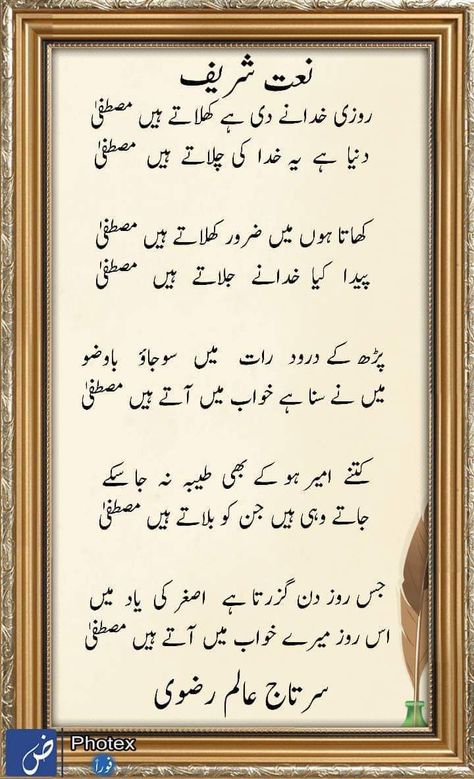 نعت شریف
روزی خدا نے دی ہے کھلاتے ہیں مصطفیٰ
دنیا ہے یہ خدا کی چلاتے ہیں مصطفیٰ
کھاتا ہوں میں ضرور کھلاتے ہیں مصطفیٰ
پیدا کیا خدا نے جلاتے ہیں مصطفیٰ
پڑھ کے درود رات میں سو جاؤ باوضو
میں نے سنا ہے خواب میں آتے ہیں مصطفیٰ
کتنے امیر ہو کے بھی طیبہ نہ جا سکے
جاتے وہی ہیں جن کو بلاتے ہیں مصطفیٰ
جس روز دن گزرتا ہے اصغر کی یاد میں
اس روز میرے خواب میں آتے ہیں مصطفیٰ
سرتاج عالم رضوی
ض Photex
فورا